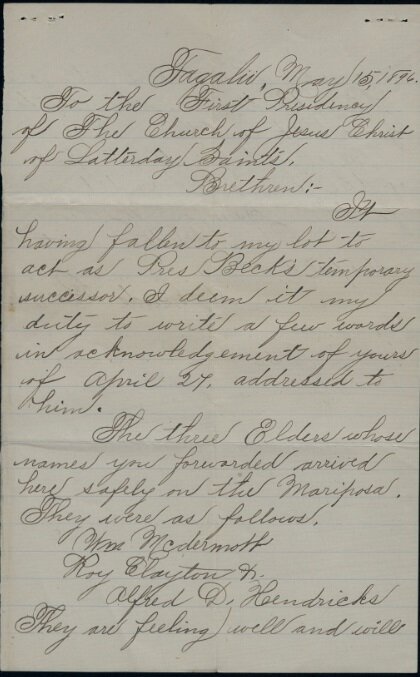 Fagalii, May 15, 1896.
To the First Presidency
of The Church of Jesus Christ
of Latterday Saints.
Brethren:-
It
having fallen to my lot to
act as Pres Beck's temporary
successor. I deem it my
duty to write a few words
in acknowledgement of yours
of April 27. addressed to
him.
The three Elders whose
names you forwarded arrived
here safely on the Mariposa.
They were as follows.
Wm McDermott
Roy Clayton &.
Alfred D. Hendricks
They are feeling well and will